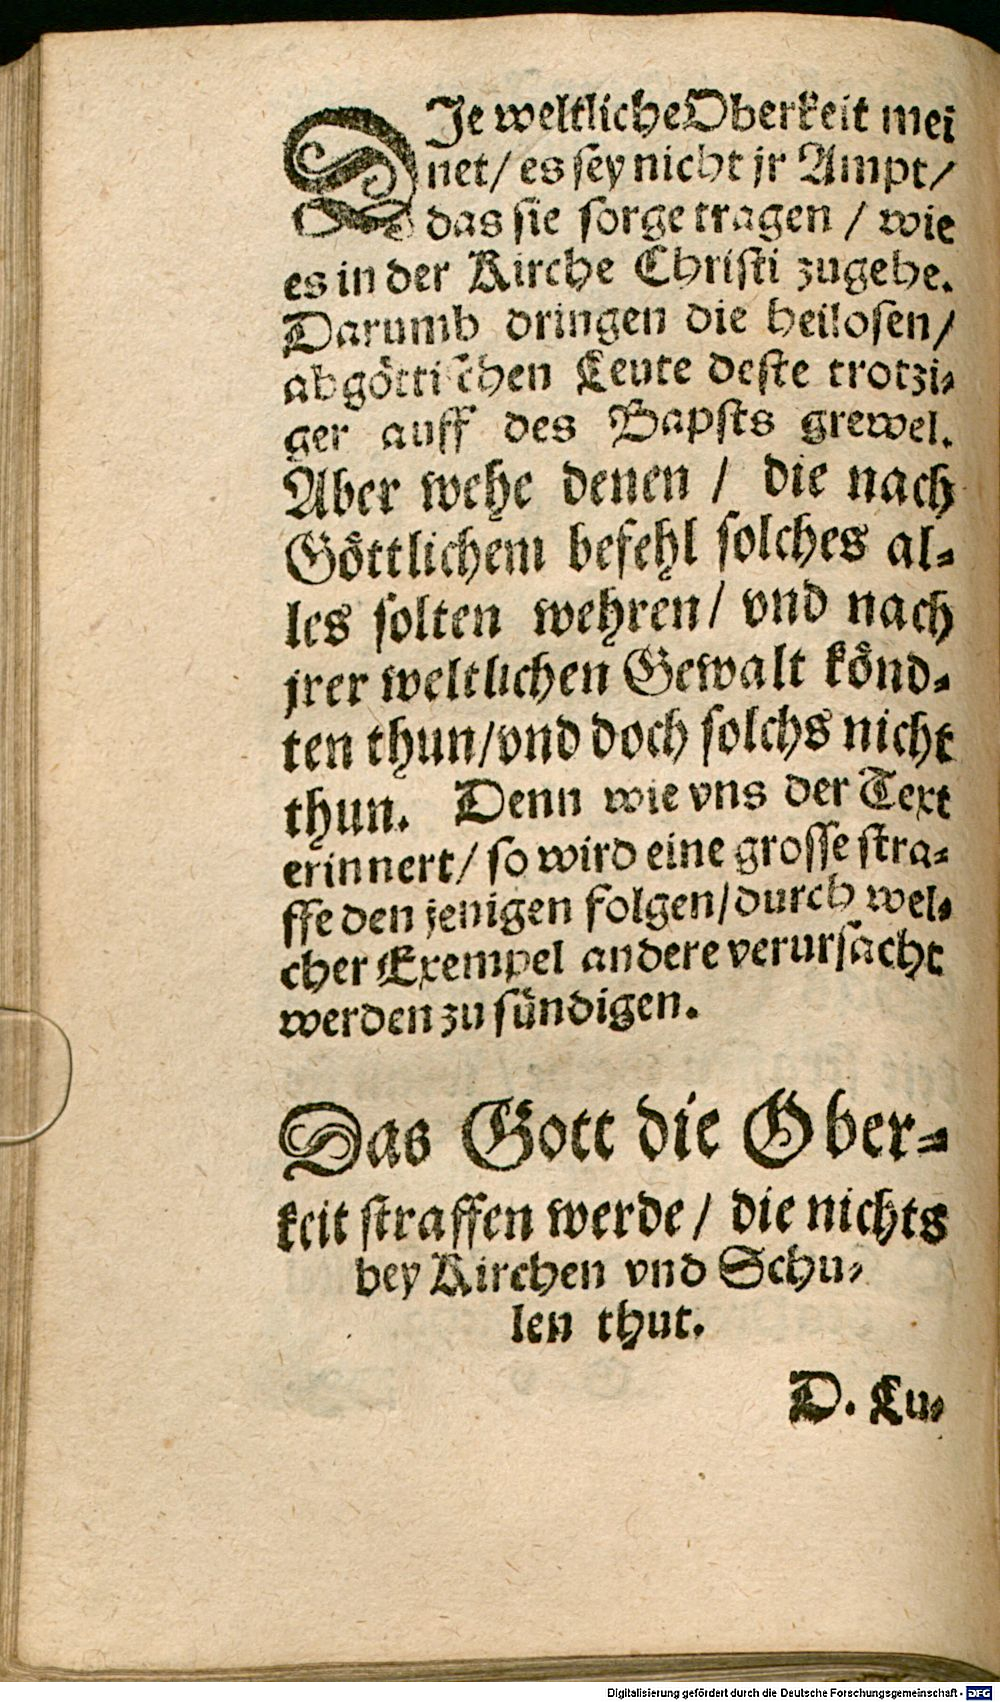 DIe weltliche Oberkeit mei
net / es sey nicht jr Ampt /
das sie sorge tragen / wie
es in der Kirche Christi zugehe.
Darumb dringen die heilosen /
abgöttischen Leute deste trotzi-
ger auff des Bapsts grewel.
Aber wehe denen / die nach
Göttlichem befehl solches al-
les solten wehren / vnd nach
jrer weltlichen Gewalt könd-
ten thun / vnd doch solchs nicht
thun. Denn wie vns der Text
erinnert / so wird eine grosse stra-
ffe den jenigen folgen / durch wel-
cher Exempel andere verursacht
werden zu sündigen.
Das Gott die Ober-
keit straffen werde / die nichts
bey Kirchen vnd Schu-
len thut.
D. Lu-
Digitalisierung gefördert durch die Deutsche Forschungsgemeinschaft - DFG